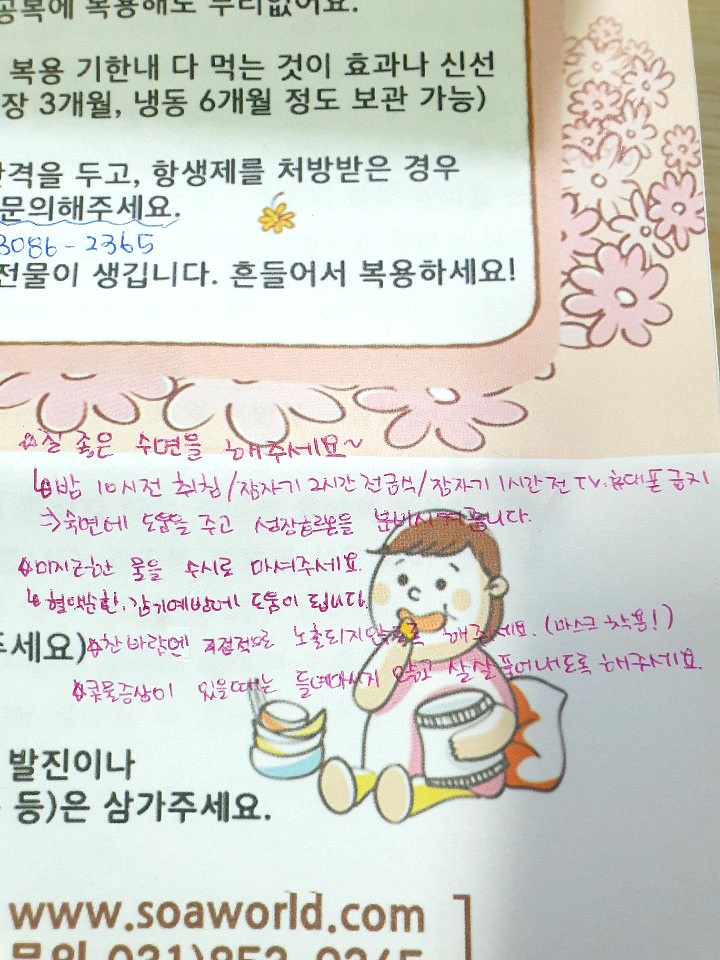 공복에 복용해도 무리없어요.
복용 기한내 다 먹는 것이 효과나 신선
장 3개월, 냉동 6개월 정도 보관 가능)
간격을 두고, 항생제를 처방받은 경우
문의해주세요.
3086-2365
전물이 생깁니다. 흔들어서 복용하세요!
☆질 좋은 수면을 해주세요~
↳밤 10시전 취침/잠자기 2시간 전 금식/잠자기 1시간 전 TV.휴대폰 금지
⇒숙면에 도움을 주고 성장호르몬을 분비시켜줍니다.
☆미지근한 물을 수시로 마셔주세요.
↳혈액순환.감기예방에 도움이 됩니다.
주세요)
☆찬 바람엔 직접적으로 노출되지않도록 해주세요.(마스크 착용!)
☆콧물증상이 있을때는 들이마시지 않고 살살 풀어내도록 해주세요.
발진이나
등)은 삼가주세요.
www.soaworld.com
문의 031)853-9265